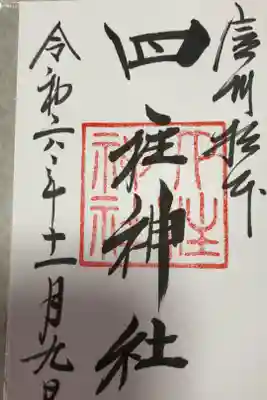 信州松本
四柱神社
四柱神社
令和六年十一月九日